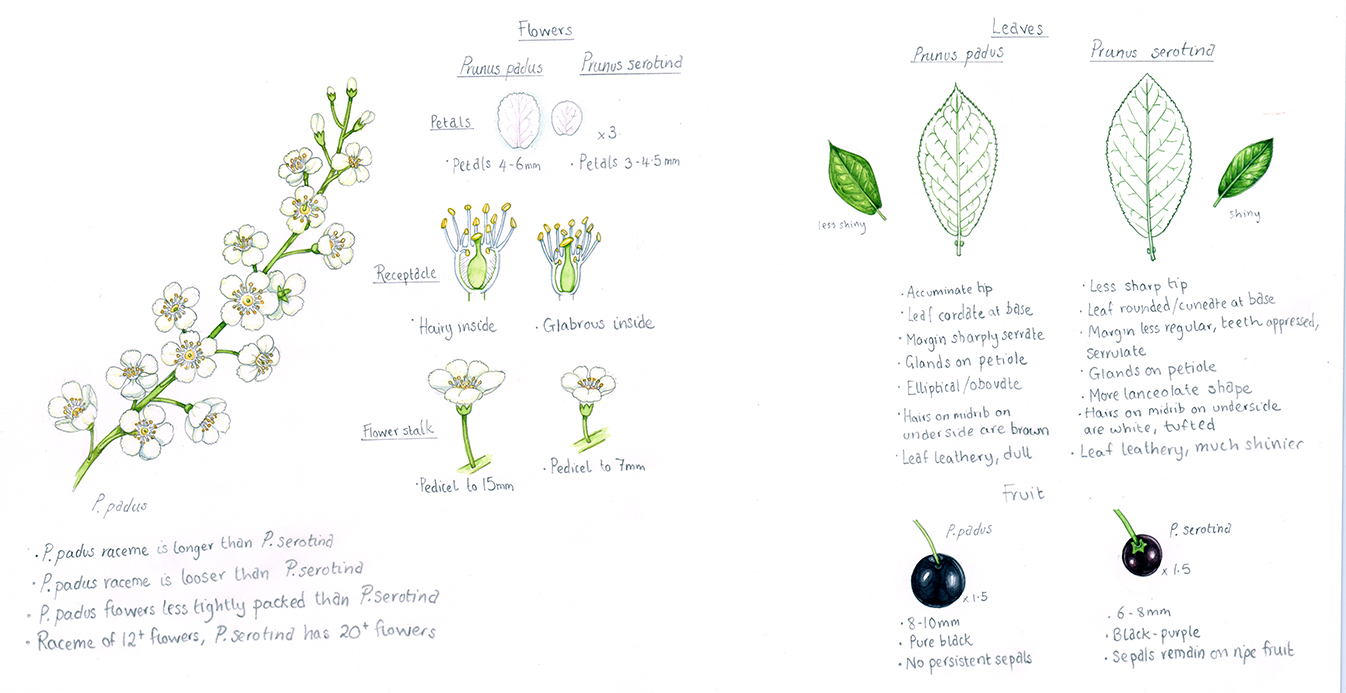 Flowers
Prunus padus
Prunus serotina
Petals
x3
· Petals 4-6mm
· Petals 3-4·5mm
Receptacle
· Hairy inside
· Glabrous inside
Flower stalk
· Pedicel to 15mm
· Pedicel to 7mm
P. padus
· P. padus raceme is longer than P. serotina
· P. padus raceme is looser than P. serotina
· P. padus flowers less tightly packed than P. serotina
· Raceme of 12+ flowers, P. serotina has 20+ flowers
Leaves
Prunus padus
Prunus serotina
less shiny
shiny
· Accuminate tip
· Leaf cordate at base
· Margin sharply serrate
· Glands on petiole
· Elliptical/obovate
· Hairs on midrib on
underside are brown
· Leaf leathery, dull
· Less sharp tip
· Leaf rounded/cuneate at base
· Margin less regular, teeth appressed,
serrulate
· Glands on petiole
· More lanceolate shape
· Hairs on midrib on underside
are white, tufted
· Leaf leathery, much shinier
Fruit
P. padus
x 1·5
· 8-10mm
· Pure black
· No persistent sepals
P. serotina
x 1·5
· 6-8mm
· Black-purple
· Sepals remain on ripe fruit